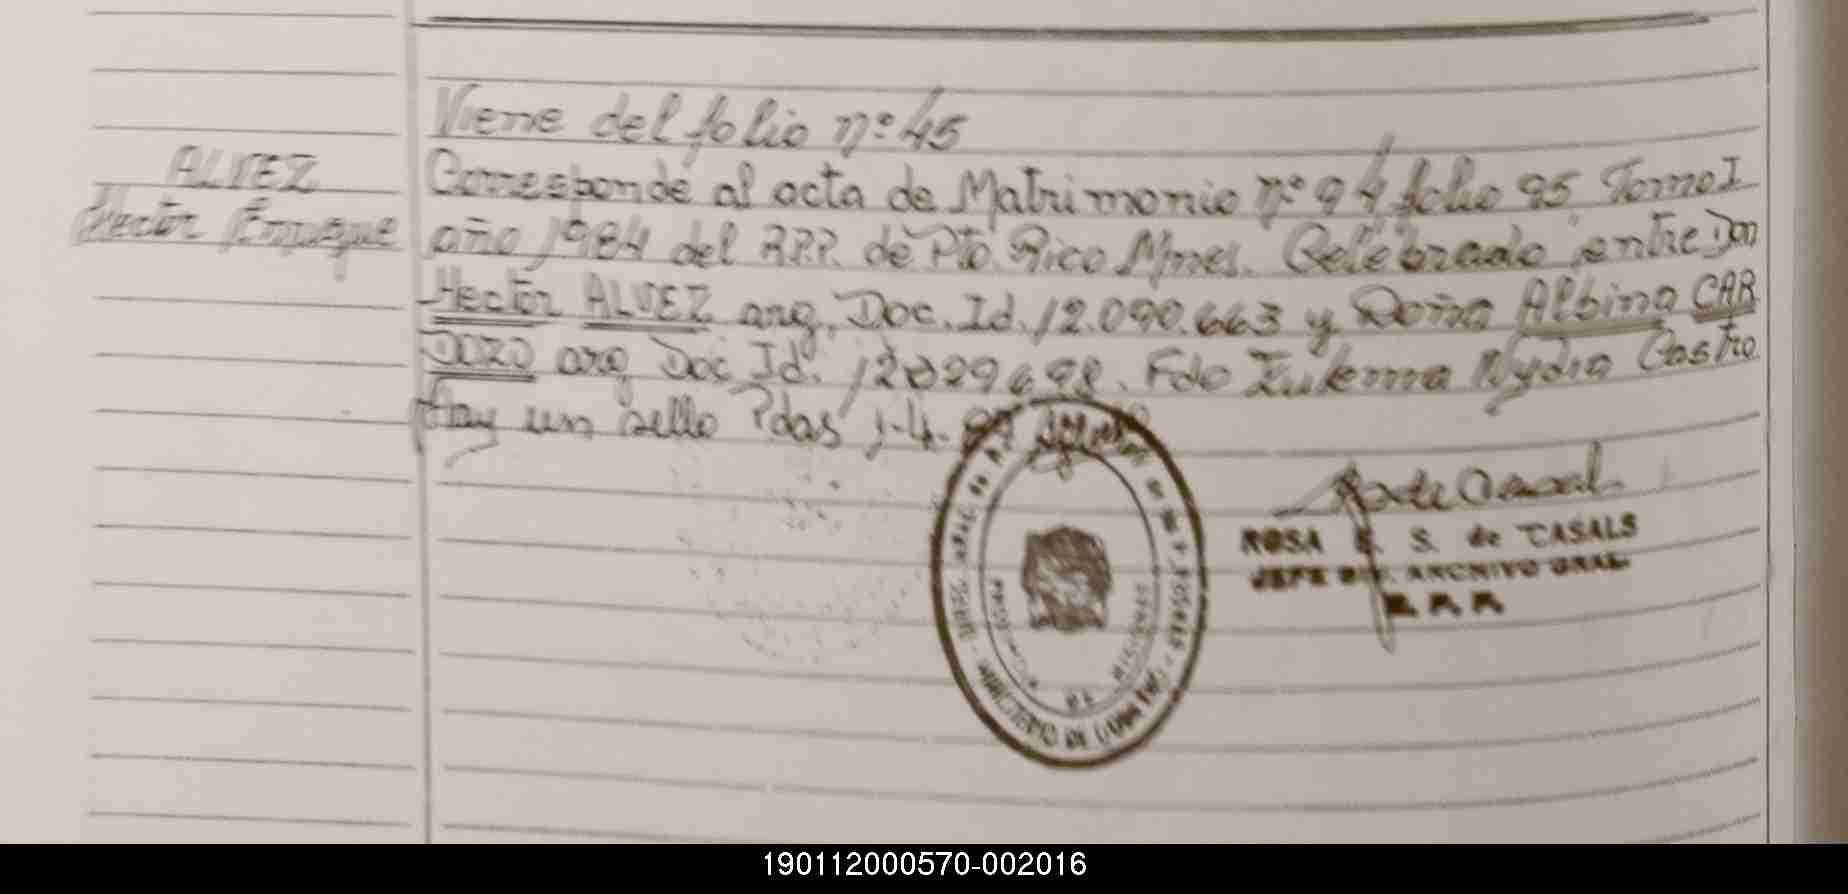 Viene del folio nº 45
ALVEZ
Hector Enrique
Corresponde al acta de Matrimonio nº 94 folio 95 Tomo I
año 1984 del R.P.P. de Pto. Rico Mnes. Celebrado entre Don
Hector ALVEZ arg. Doc. Id. 12.090.663 y Doña Albina CAR
DOZO arg Doc Id. Fdo Zulema Nydia Castro
Hay un sello Pdas 1-4-87
ROSA E. S. de CASALS
JEFE DIV. ARCHIVO GRAL
R. P. P.
MINISTERIO DE
MISIONES
190112000570-002016